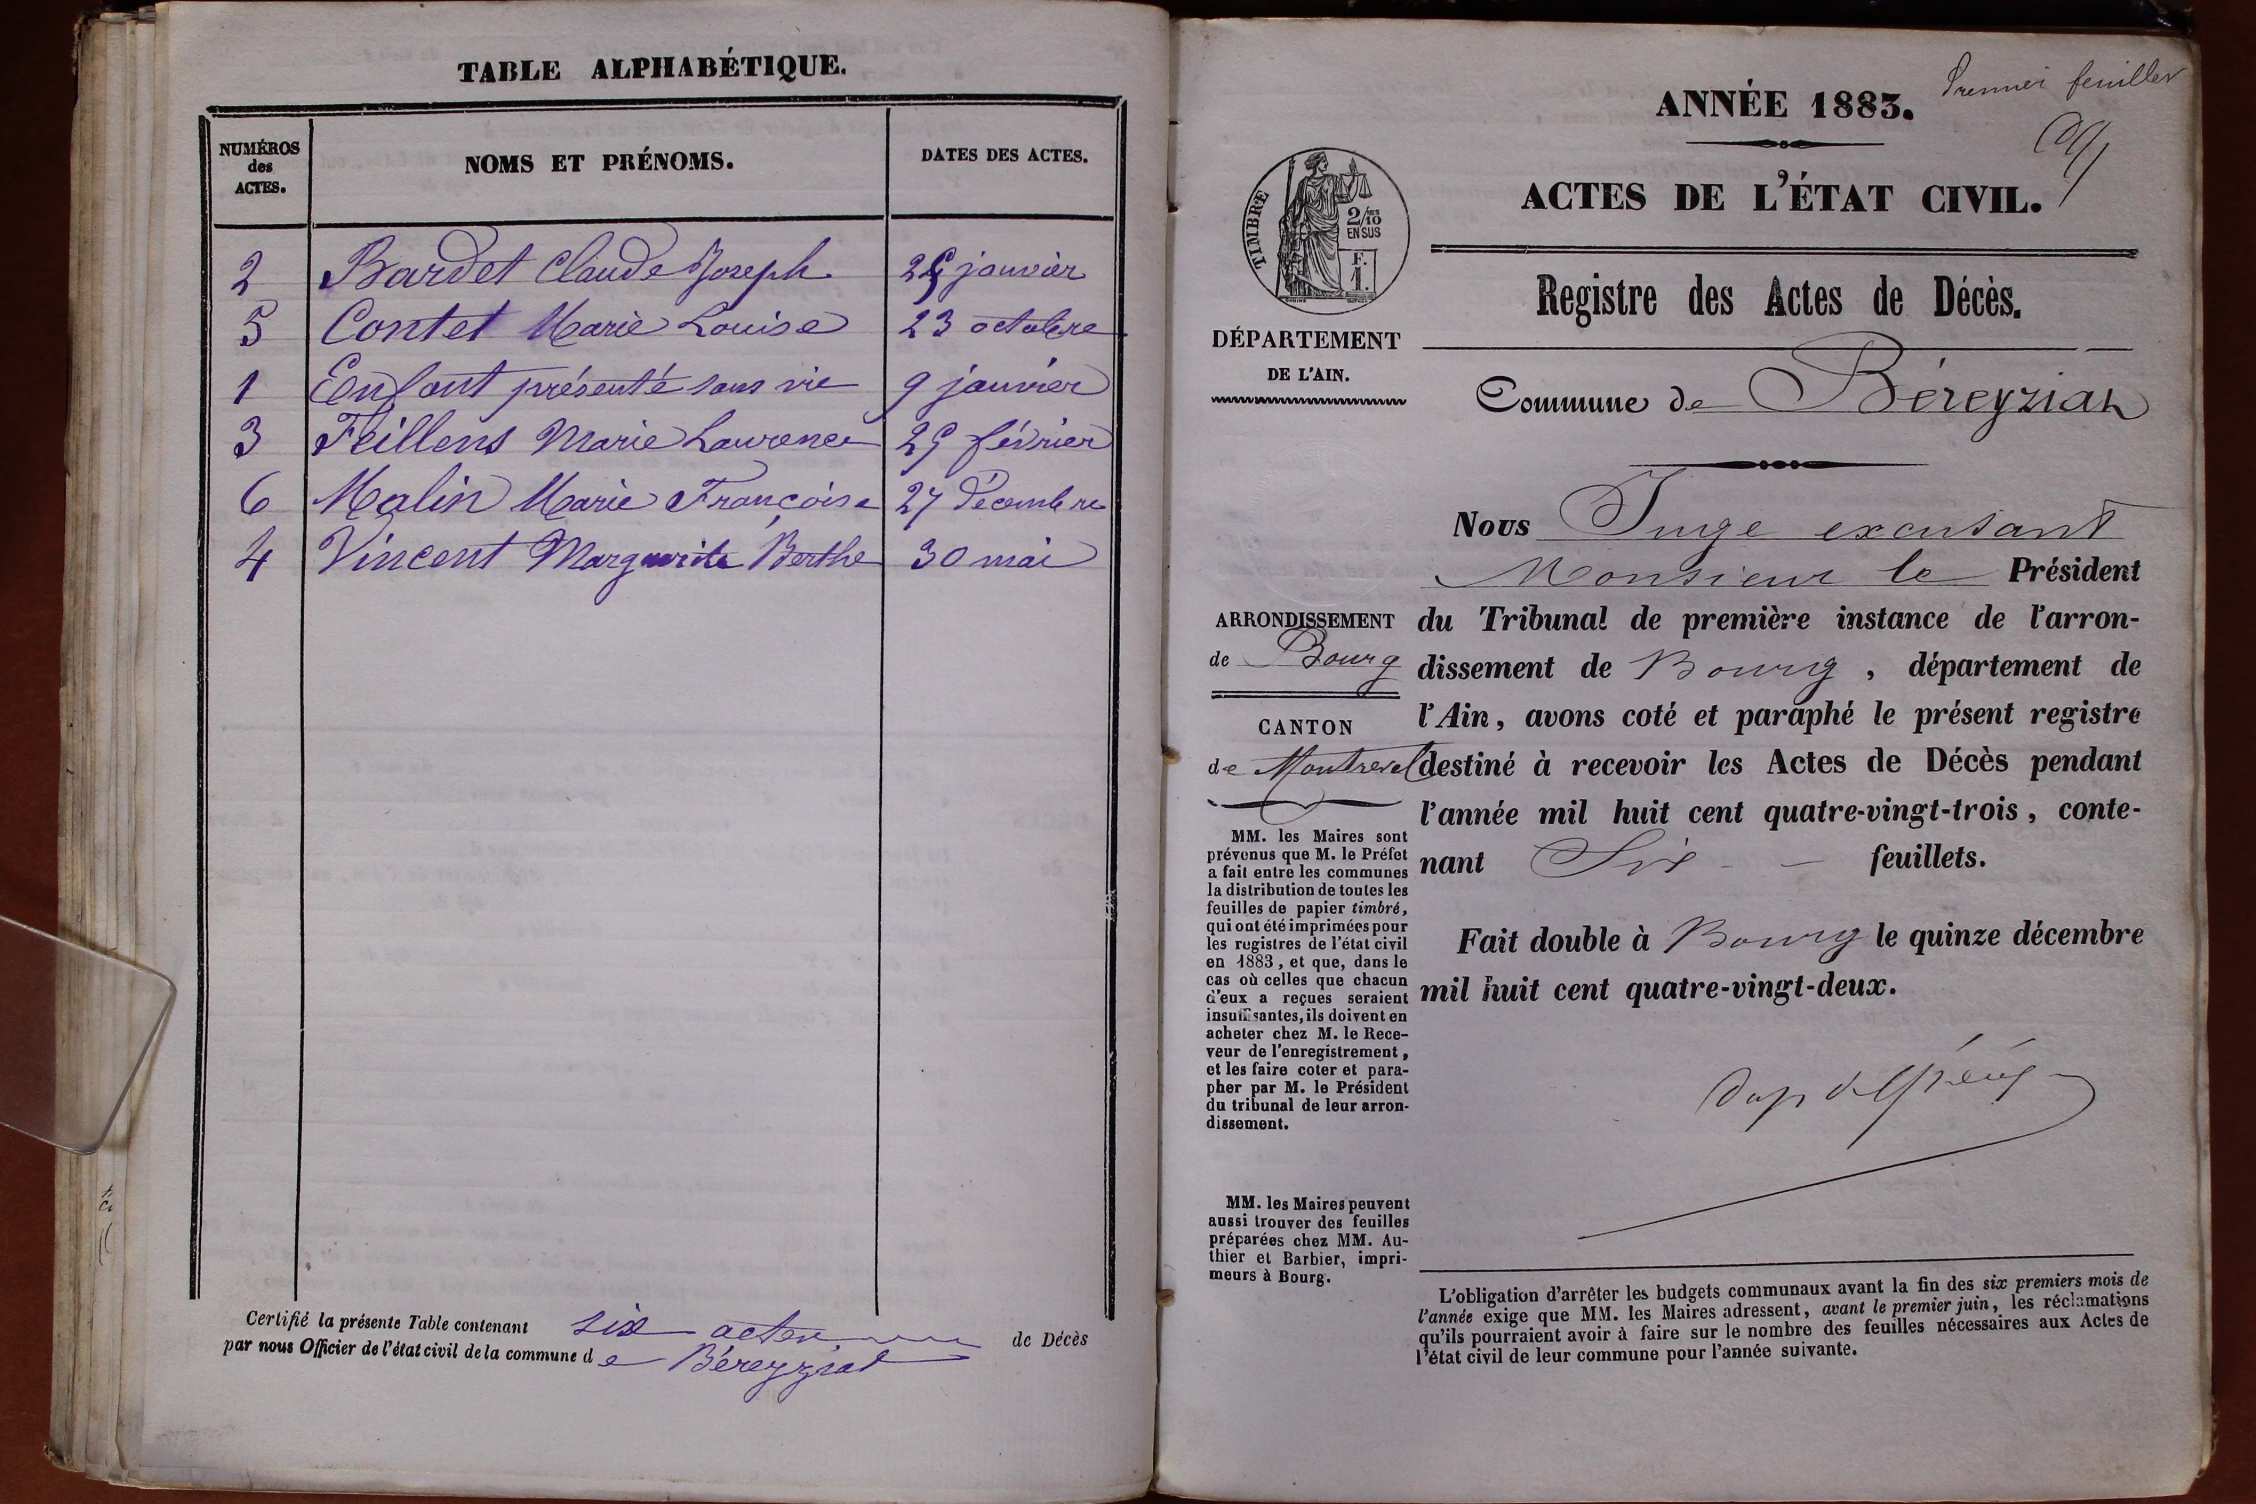 TABLE ALPHABÉTIQUE.
NUMÉROS des ACTES. NOMS ET PRÉNOMS. DATES DES ACTES.
2 Bardet Claude Joseph janvier
5 Contet Marie Louise 23 octobre
1 Enfant présenté sans vie 9 janvier
3 Feillens Marie Laurence février
6 Malin Marie Françoise 27 décembre
4 Vincent Marguerite Berthe 30 mai
Certifié la présente Table contenant six actes de Décès
par nous Officier de l'état civil de la commune de Béreyziat
Premier feuillet
ANNÉE 1883.
ACTES DE L'ÉTAT CIVIL.
TIMBRE
2/10
EN SUS
F.
1.
Registre des Actes de Décès.
DÉPARTEMENT
DE L'AIN.
Commune de Béreyziat
Nous Juge excusant
Monsieur le Président
du Tribunal de première instance de l'arron-
dissement de Bourg, département de
l'Ain, avons coté et paraphé le présent registre
destiné à recevoir les Actes de Décès pendant
l'année mil huit cent quatre-vingt-trois, conte-
nant Six feuillets.
Fait double à Bourg le quinze décembre
mil huit cent quatre-vingt-deux.
ARRONDISSEMENT
de Bourg
CANTON
de Montrevel
MM. les Maires sont
prévenus que M. le Préfet
a fait entre les communes
la distribution de toutes les
feuilles de papier timbré,
qui ont été imprimées pour
les registres de l'état civil
en 1883, et que, dans le
cas où celles que chacun
d'eux a reçues seraient
insuffisantes, ils doivent en
acheter chez M. le Rece-
veur de l'enregistrement,
et les faire coter et para-
pher par M. le Président
du tribunal de leur arron-
dissement.
MM. les Maires peuvent
aussi trouver des feuilles
préparées chez MM. Au-
thier et Barbier, impri-
meurs à Bourg.
L'obligation d'arrêter les budgets communaux avant la fin des six premiers mois de
l'année exige que MM. les Maires adressent, avant le premier juin, les réclamations
qu'ils pourraient avoir à faire sur le nombre des feuilles nécessaires aux Actes de
l'état civil de leur commune pour l'année suivante.